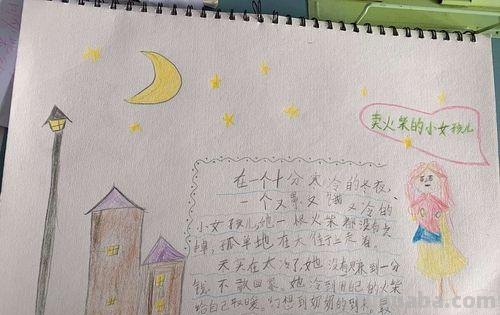 卖火柴的小女孩儿
在一个十分寒冷的冬夜,
一个又寒又饿又冷的
小女孩儿,她一根火柴都没有卖
掉,孤单地在大街上走着。
天实在太冷了,她没有赚到一分
钱,不敢回家。她冷到用自己的火柴
给自己取暖。幻想到奶奶的到来,最